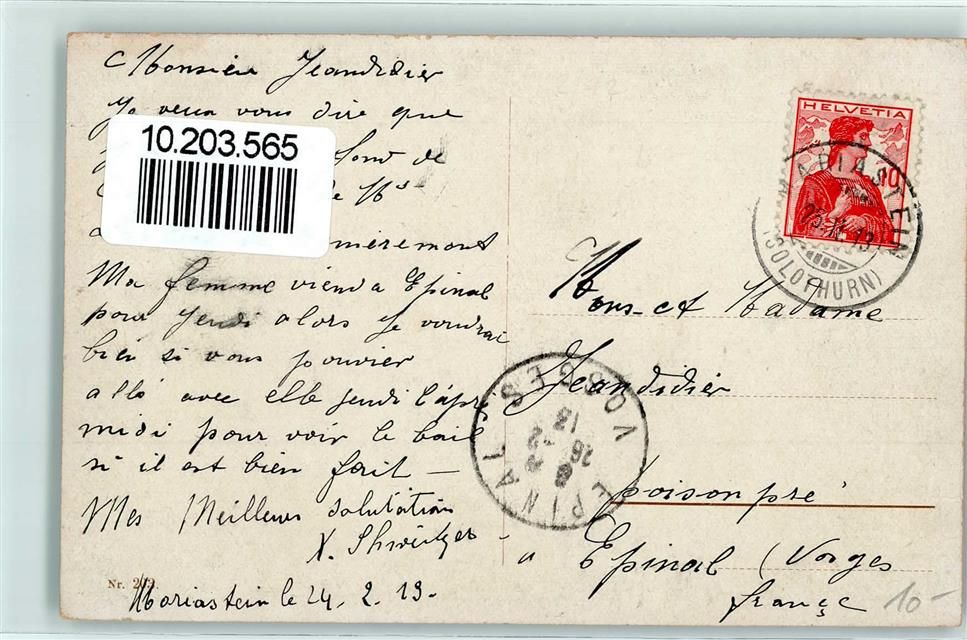 Monsieur Jeandidier
Je veux vous dire que
10.203.565
font de
le Ms
Ma femme viend a Epinal
pour Jeudi alors Je voudrai
bien si vous pouvier
allé avec elle Jeudi l'après
midi pour voir le bail
si il est bien fait —
Mes Meilleurs salutation
X. Shweitzer
Nr. 203.
Mariastein le 24. 2. 13.
HELVETIA
10
MARIASTEIN
(SOLOTHURN)
Mons- et Madame
Jeandidier
poison pré
a Epinal (Vorges
françe
EPINAL VOSGES
10-